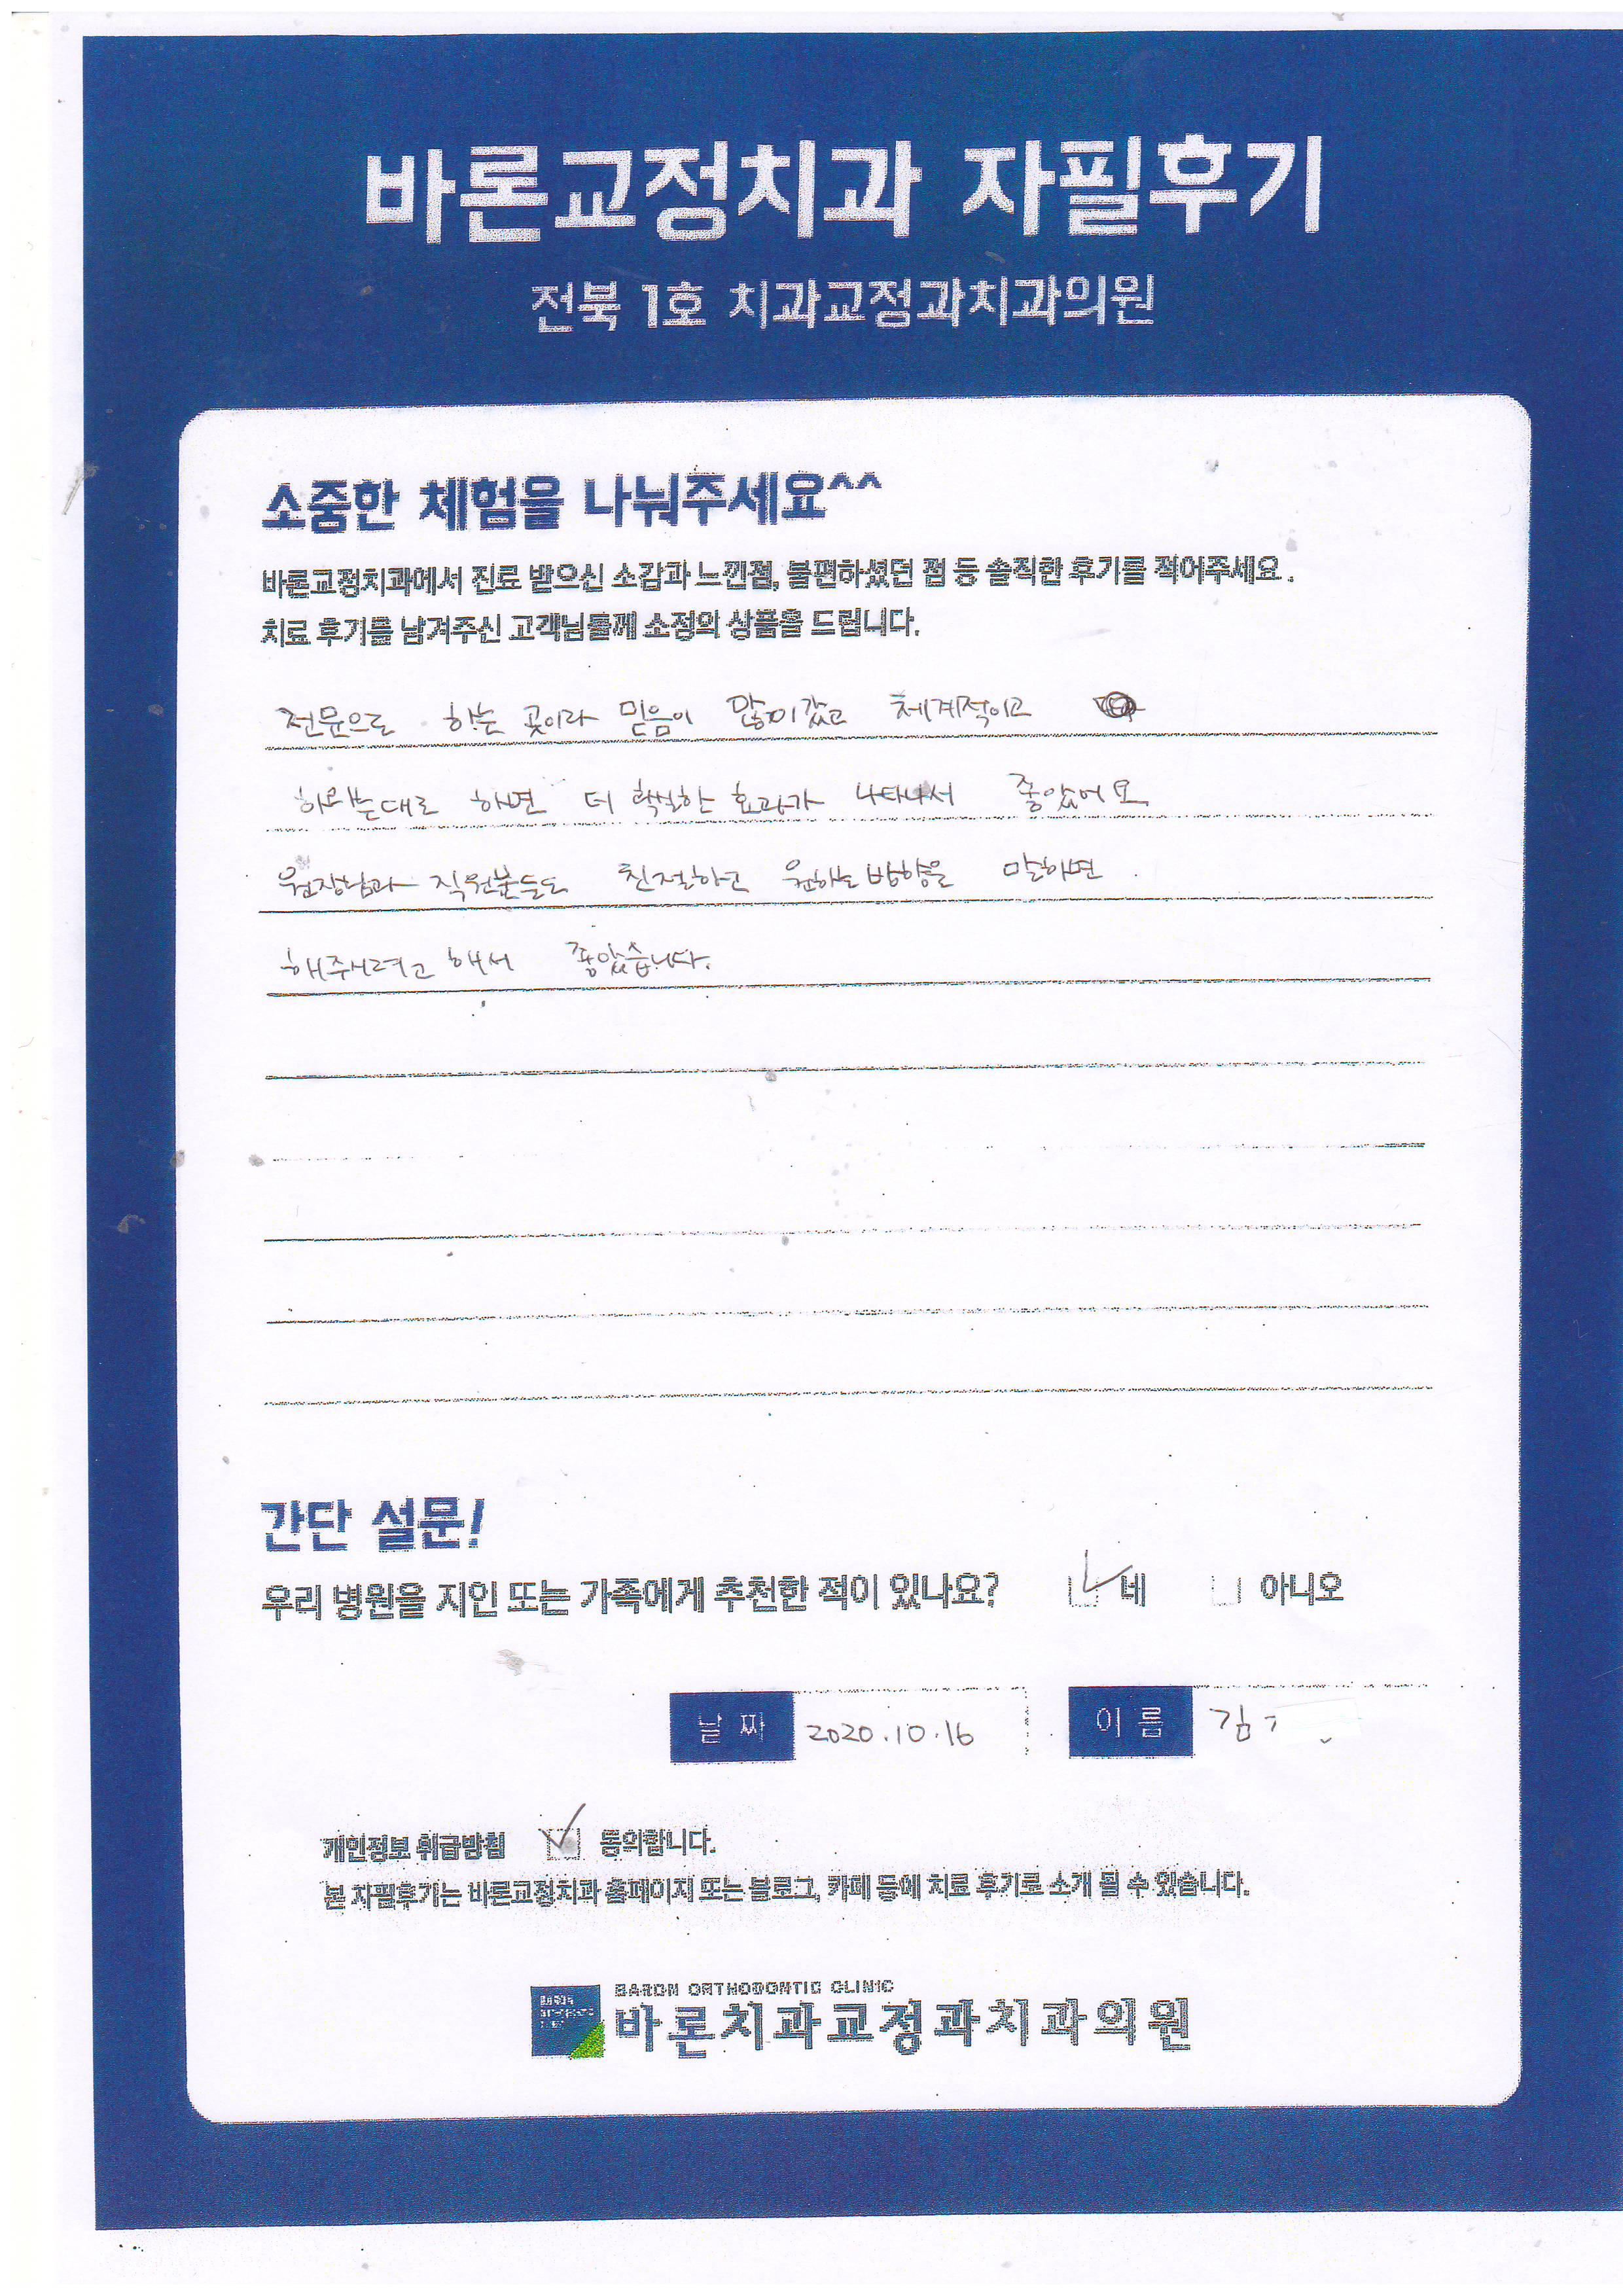 바론교정치과 자필후기
전북 1호 치과교정과치과의원
소중한 체험을 나눠주세요^^
바론교정치과에서 진료 받으신 소감과 느낀점, 불편하셨던 점 등 솔직한 후기를 적어주세요.
치료 후기를 남겨주신 고객님들께 소정의 상품을 드립니다.
전문으로 하는 곳이라 믿음이 많이 갔고 체계적이고
하라는대로 하면 더 확실한 효과가 나타나서 좋았어요
원장님과 직원분들도 친절하고 원하는 방향을 말하면
해주시려고 해서 좋았습니다.
간단 설문!
우리 병원을 지인 또는 가족에게 추천한 적이 있나요? 네 아니오
날 짜 2020.10.16 이 름 김
개인정보 취급방침 동의합니다.
본 자필후기는 바론교정치과 홈페이지 또는 블로그, 카페 등에 치료 후기로 소개 될 수 있습니다.
BARON ORTHODONTIC CLINIC
바론치과교정과치과의원